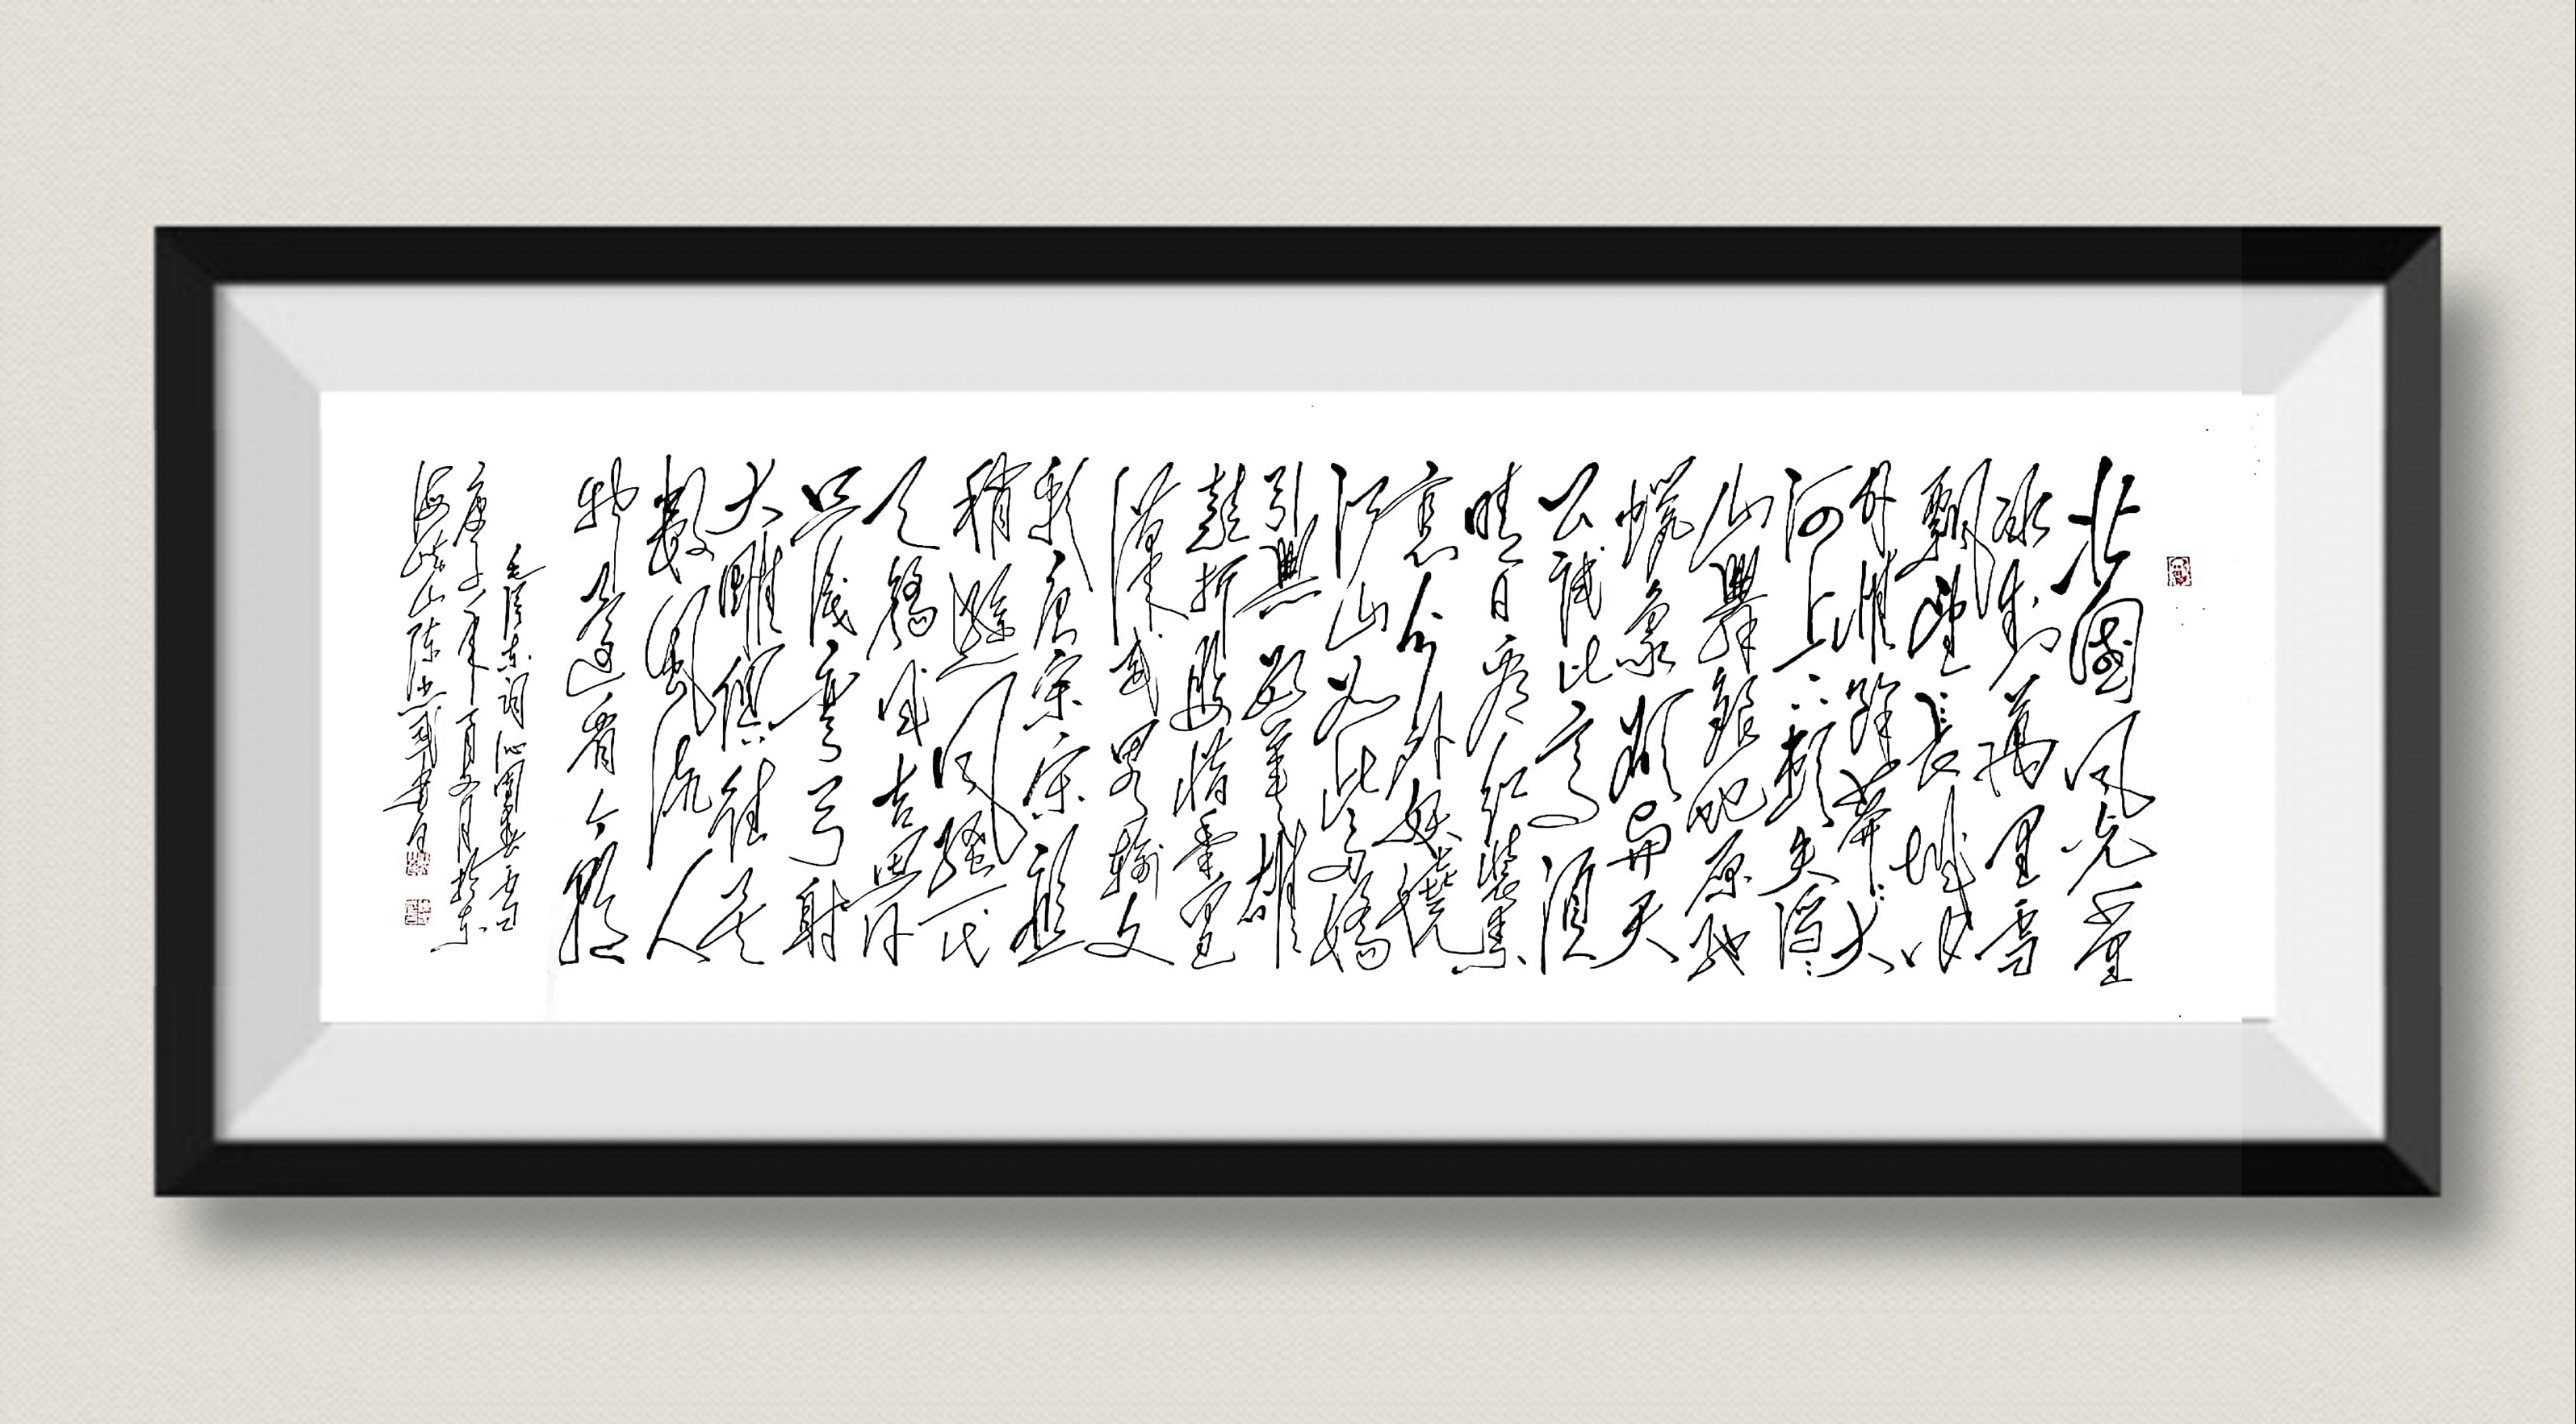 北國风光千里
冰封萬里雪
飄望長城内
外惟餘莽莽大
河上下頓失滔滔
山舞銀蛇原馳
蠟象欲與天
公試比高須
晴日看红裝素
裹分外妖嬈
江山如此多嬌
引無數英雄
競折腰惜秦皇
漢武略輸文
彩唐宗宋祖
稍遜风騷一代
天驕成吉思汗
只識彎弓射
大雕俱往矣
數風流人
物還看今朝
毛澤东词沁園春雪
庚子年月於东
海山陈書